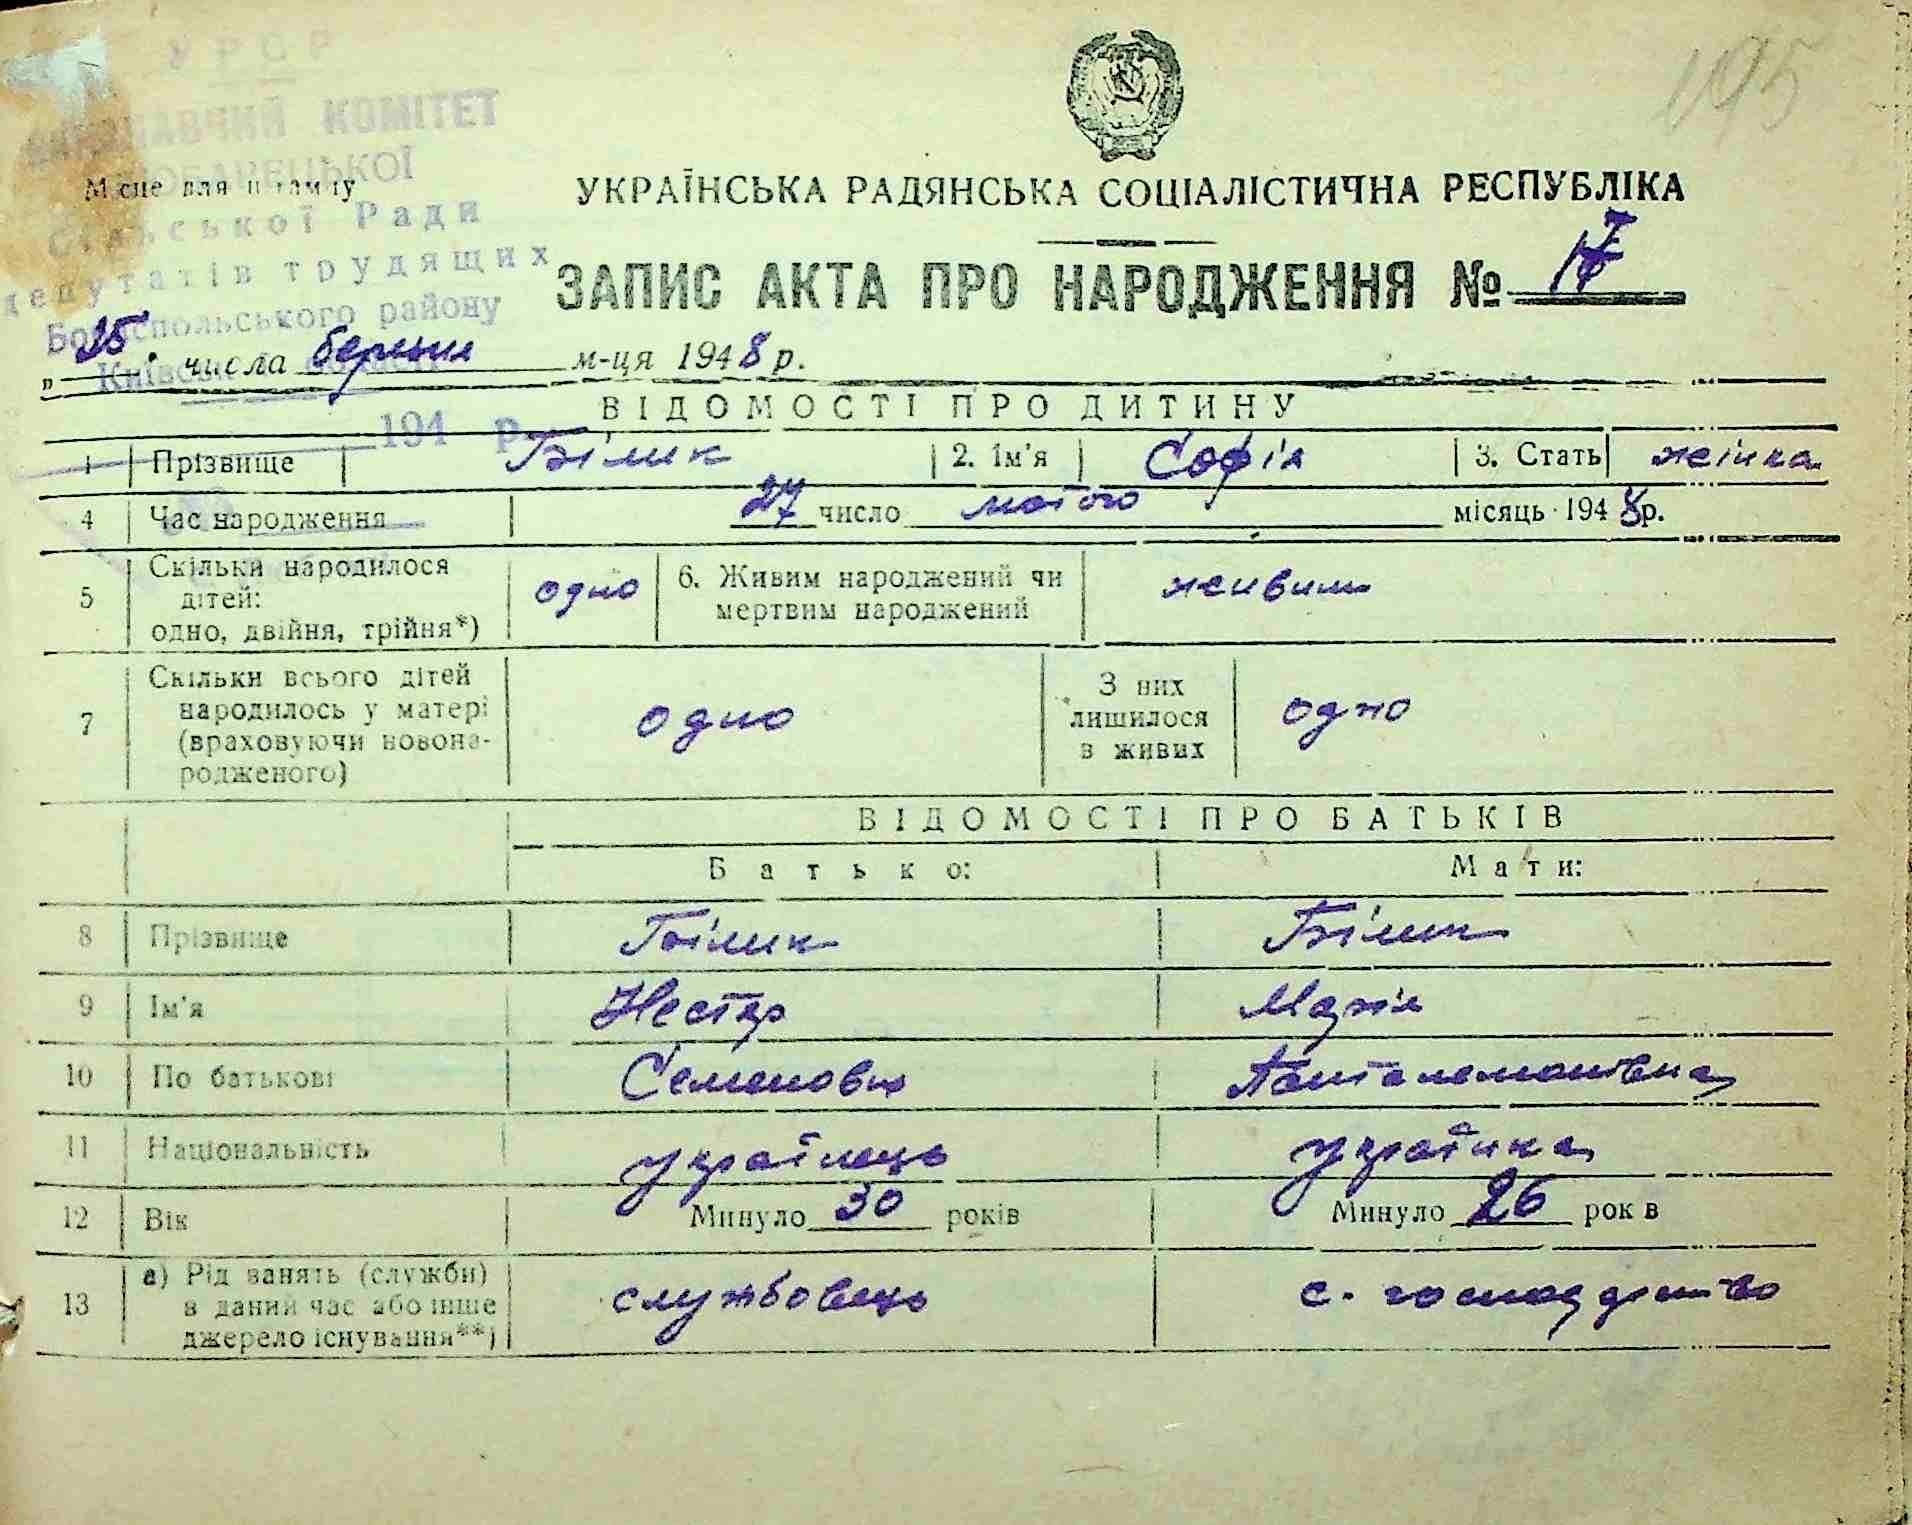 УРСР
195
ВИКОНАВЧИЙ КОМІТЕТ
Місце для штампу
УКРАЇНСЬКА РАДЯНСЬКА СОЦІАЛІСТИЧНА РЕСПУБЛІКА
сільської Ради
депутатів трудящих
ЗАПИС АКТА ПРО НАРОДЖЕННЯ № 17
Бориспольського району
„ 25 " числа березня м-ця 1948 р.
Київськ області
194 р.
ВІДОМОСТІ ПРО ДИТИНУ
1 Прізвище Білик 2. Ім'я Софія 3. Стать жінка
4 Час народження 27 число лютого місяць 1948р.
5 Скільки народилося дітей: одно, двійня, трійня*) одно 6. Живим народжений чи мертвим народжений живим
7 Скільки всього дітей народилось у матері (враховуючи новонародженого) одно З них лишилося в живих одно
ВІДОМОСТІ ПРО БАТЬКІВ
Батько: Мати:
8 Прізвище Білик Білик
9 Ім'я Нестер Марія
10 По батькові Семенович Панталемонівна
11 Національність українець українка
12 Вік Минуло 30 років Минуло 26 рок в
13 а) Рід занять (служби) в даний час або інше джерело існування**) службовець с. господарство